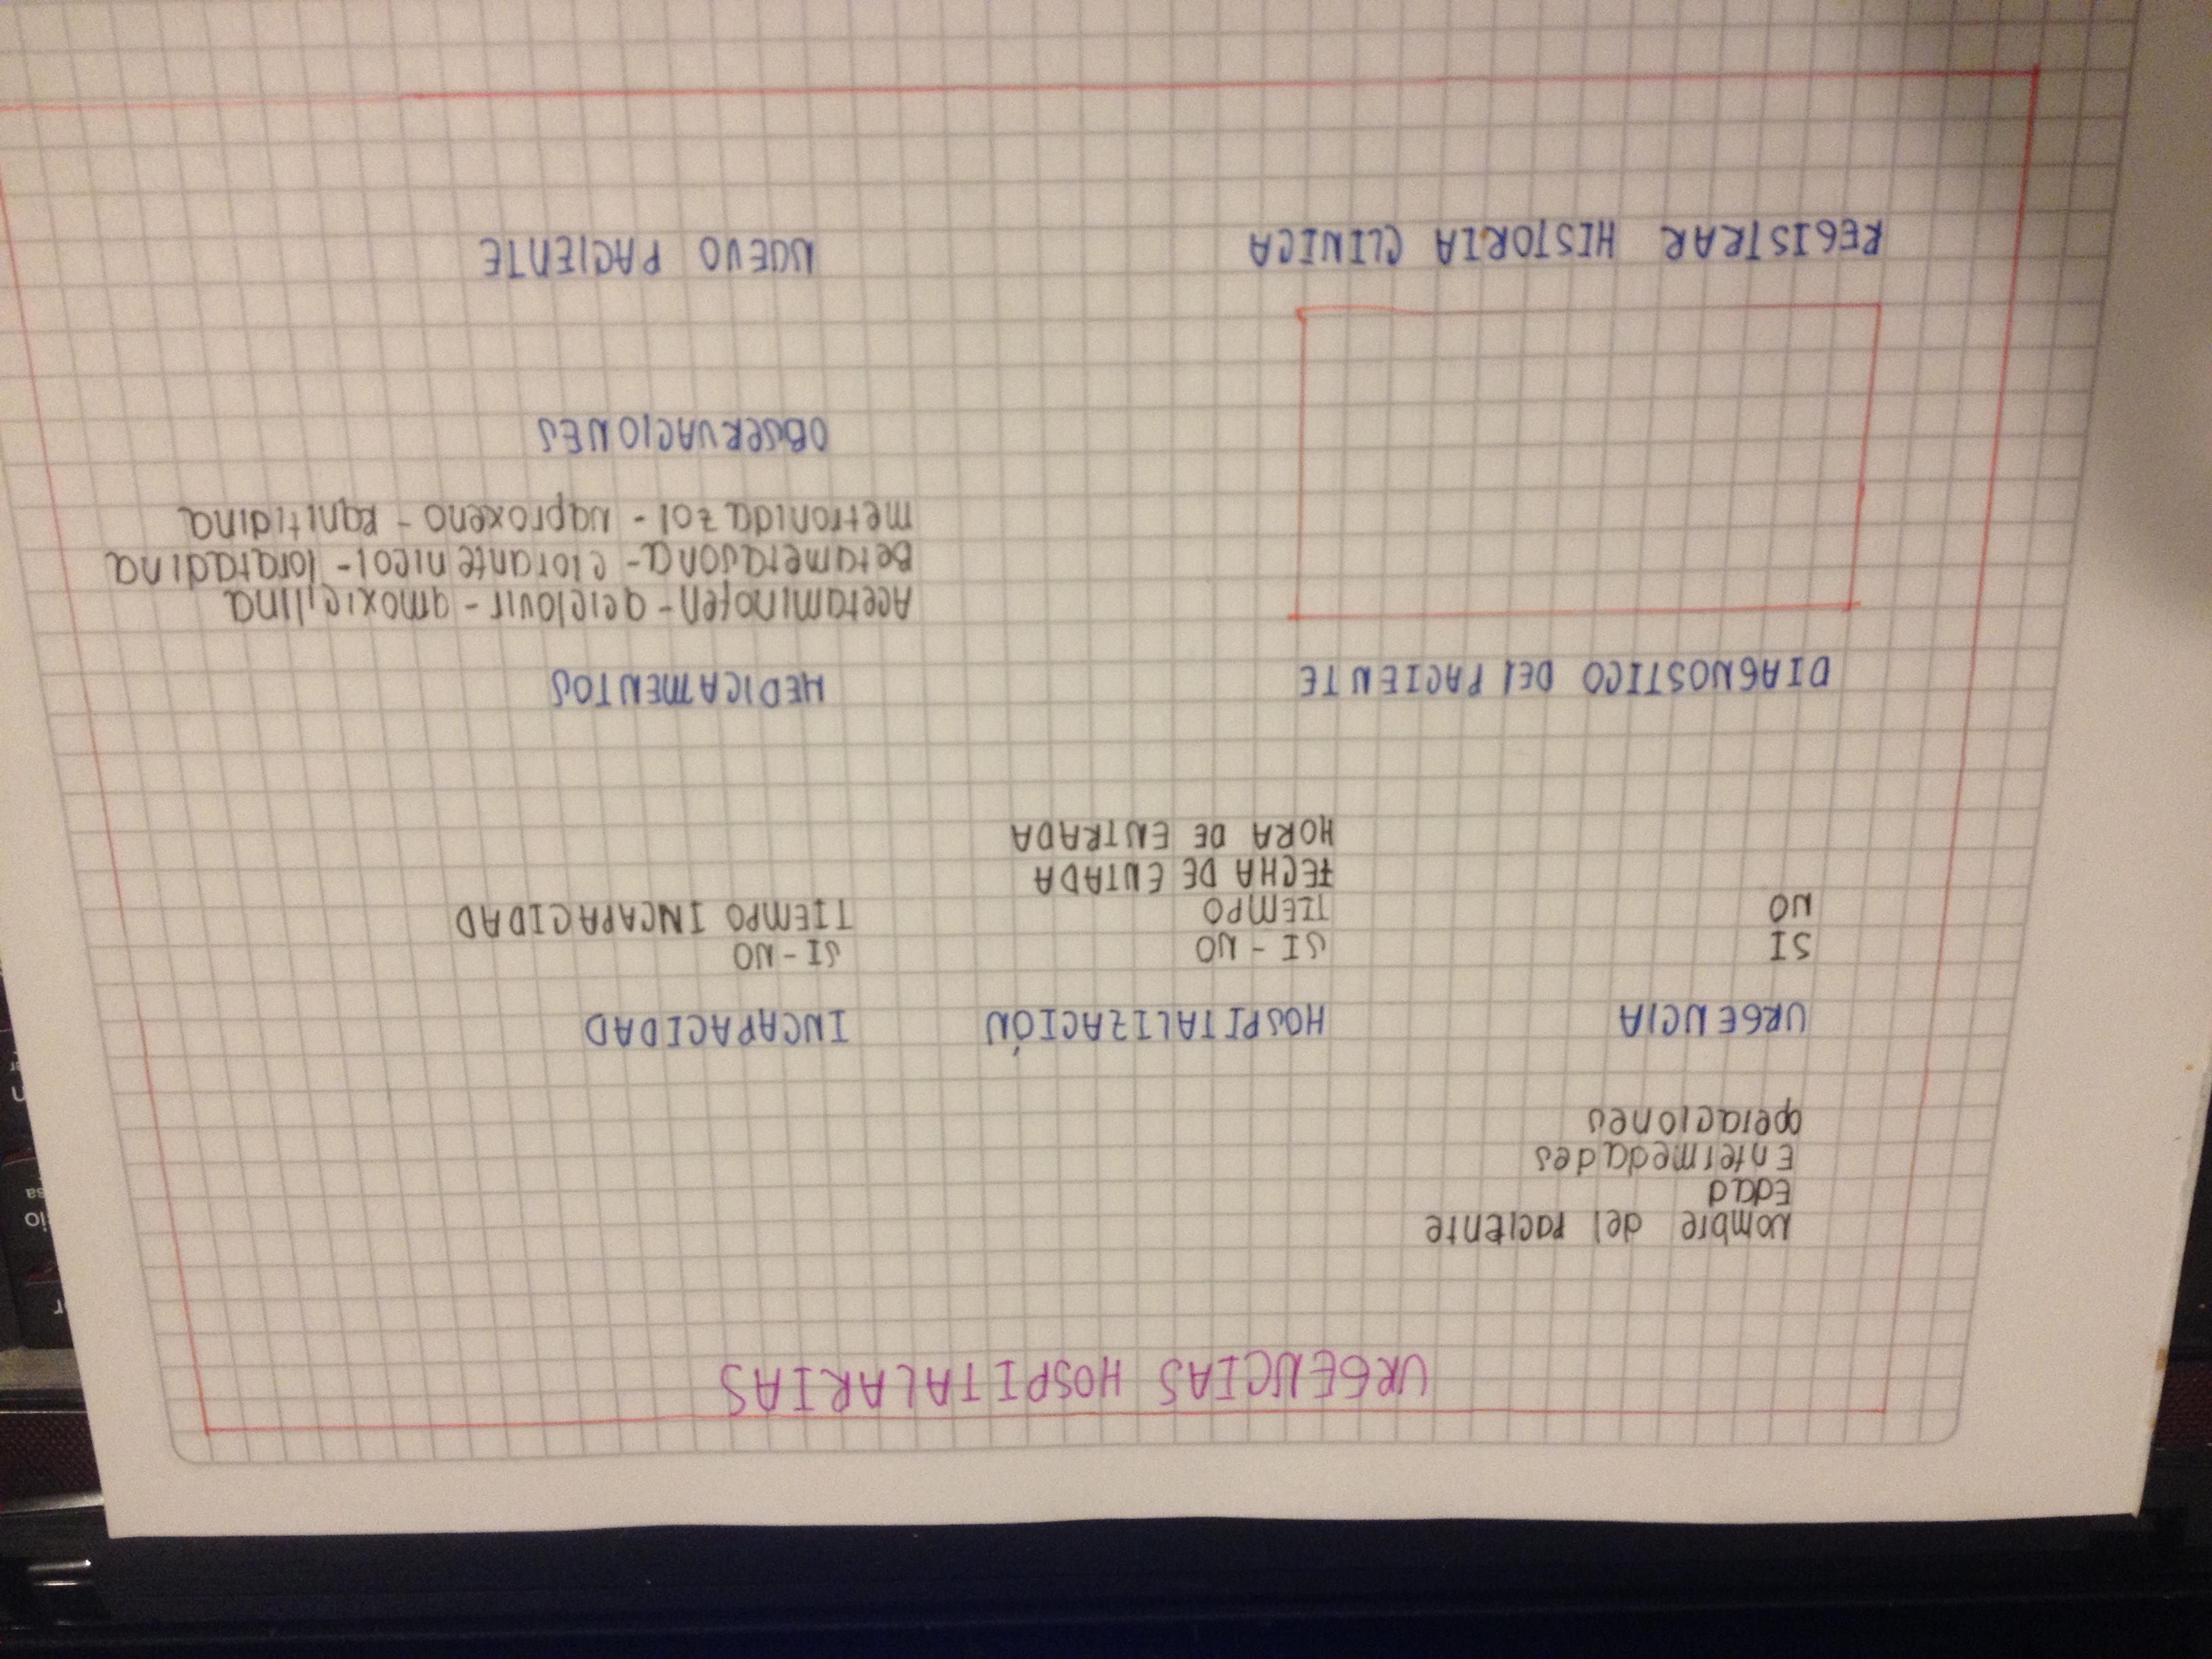 URGENCIAS HOSPITALARIAS
Nombre del paciente
Edad
Enfermedades
operaciones
URGENCIA
SI
NO
HOSPITALIZACIÓN
SI - NO
TIEMPO
FECHA DE ENTADA
HORA DE ENTRADA
INCAPACIDAD
SI - NO
TIEMPO INCAPACIDAD
DIAGNOSTICO DEL PACIENTE
MEDICAMENTOS
Acetaminofen - aciclovir - amoxicilina
Betametasona - clorantenicol - loratadina
metronidazol - naproxeno - Ranitidina
OBSERVACIONES
REGISTRAR HISTORIA CLINICA
NUEVO PACIENTE